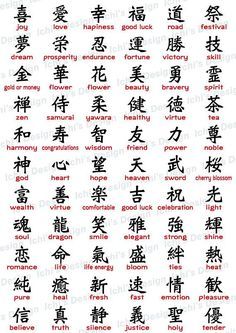 喜 愛 幸 福 道 祭
joy love happiness good luck road festival
夢 栄 忍 運 勝 技
dream prosperity endurance fortune victory skill
金 華 花 美 勇 霊
gold or money flower flower beauty bravery spirit
禅 侍 柔 健 徳 茶
zen samurai yawara healthy virtue tea
和 寿 智 友 力 尊
harmony congratulations wisdom friend power noble
神 心 望 天 武 桜
god heart hope heaven sword cherry blossom
富 善 楽 吉 祝 光
wealth virtue comfortable good luck celebration light
魂 龍 笑 雅 強 輝
soul dragon smile elegant strong shine
恋 命 氣 盛 絆 熱
romance life life energy bloom ties heat
純 癒 新 速 情 歓
pure heal fresh fast emotion pleasure
信 真 静 義 聖 優
believe truth silence justice holy tender